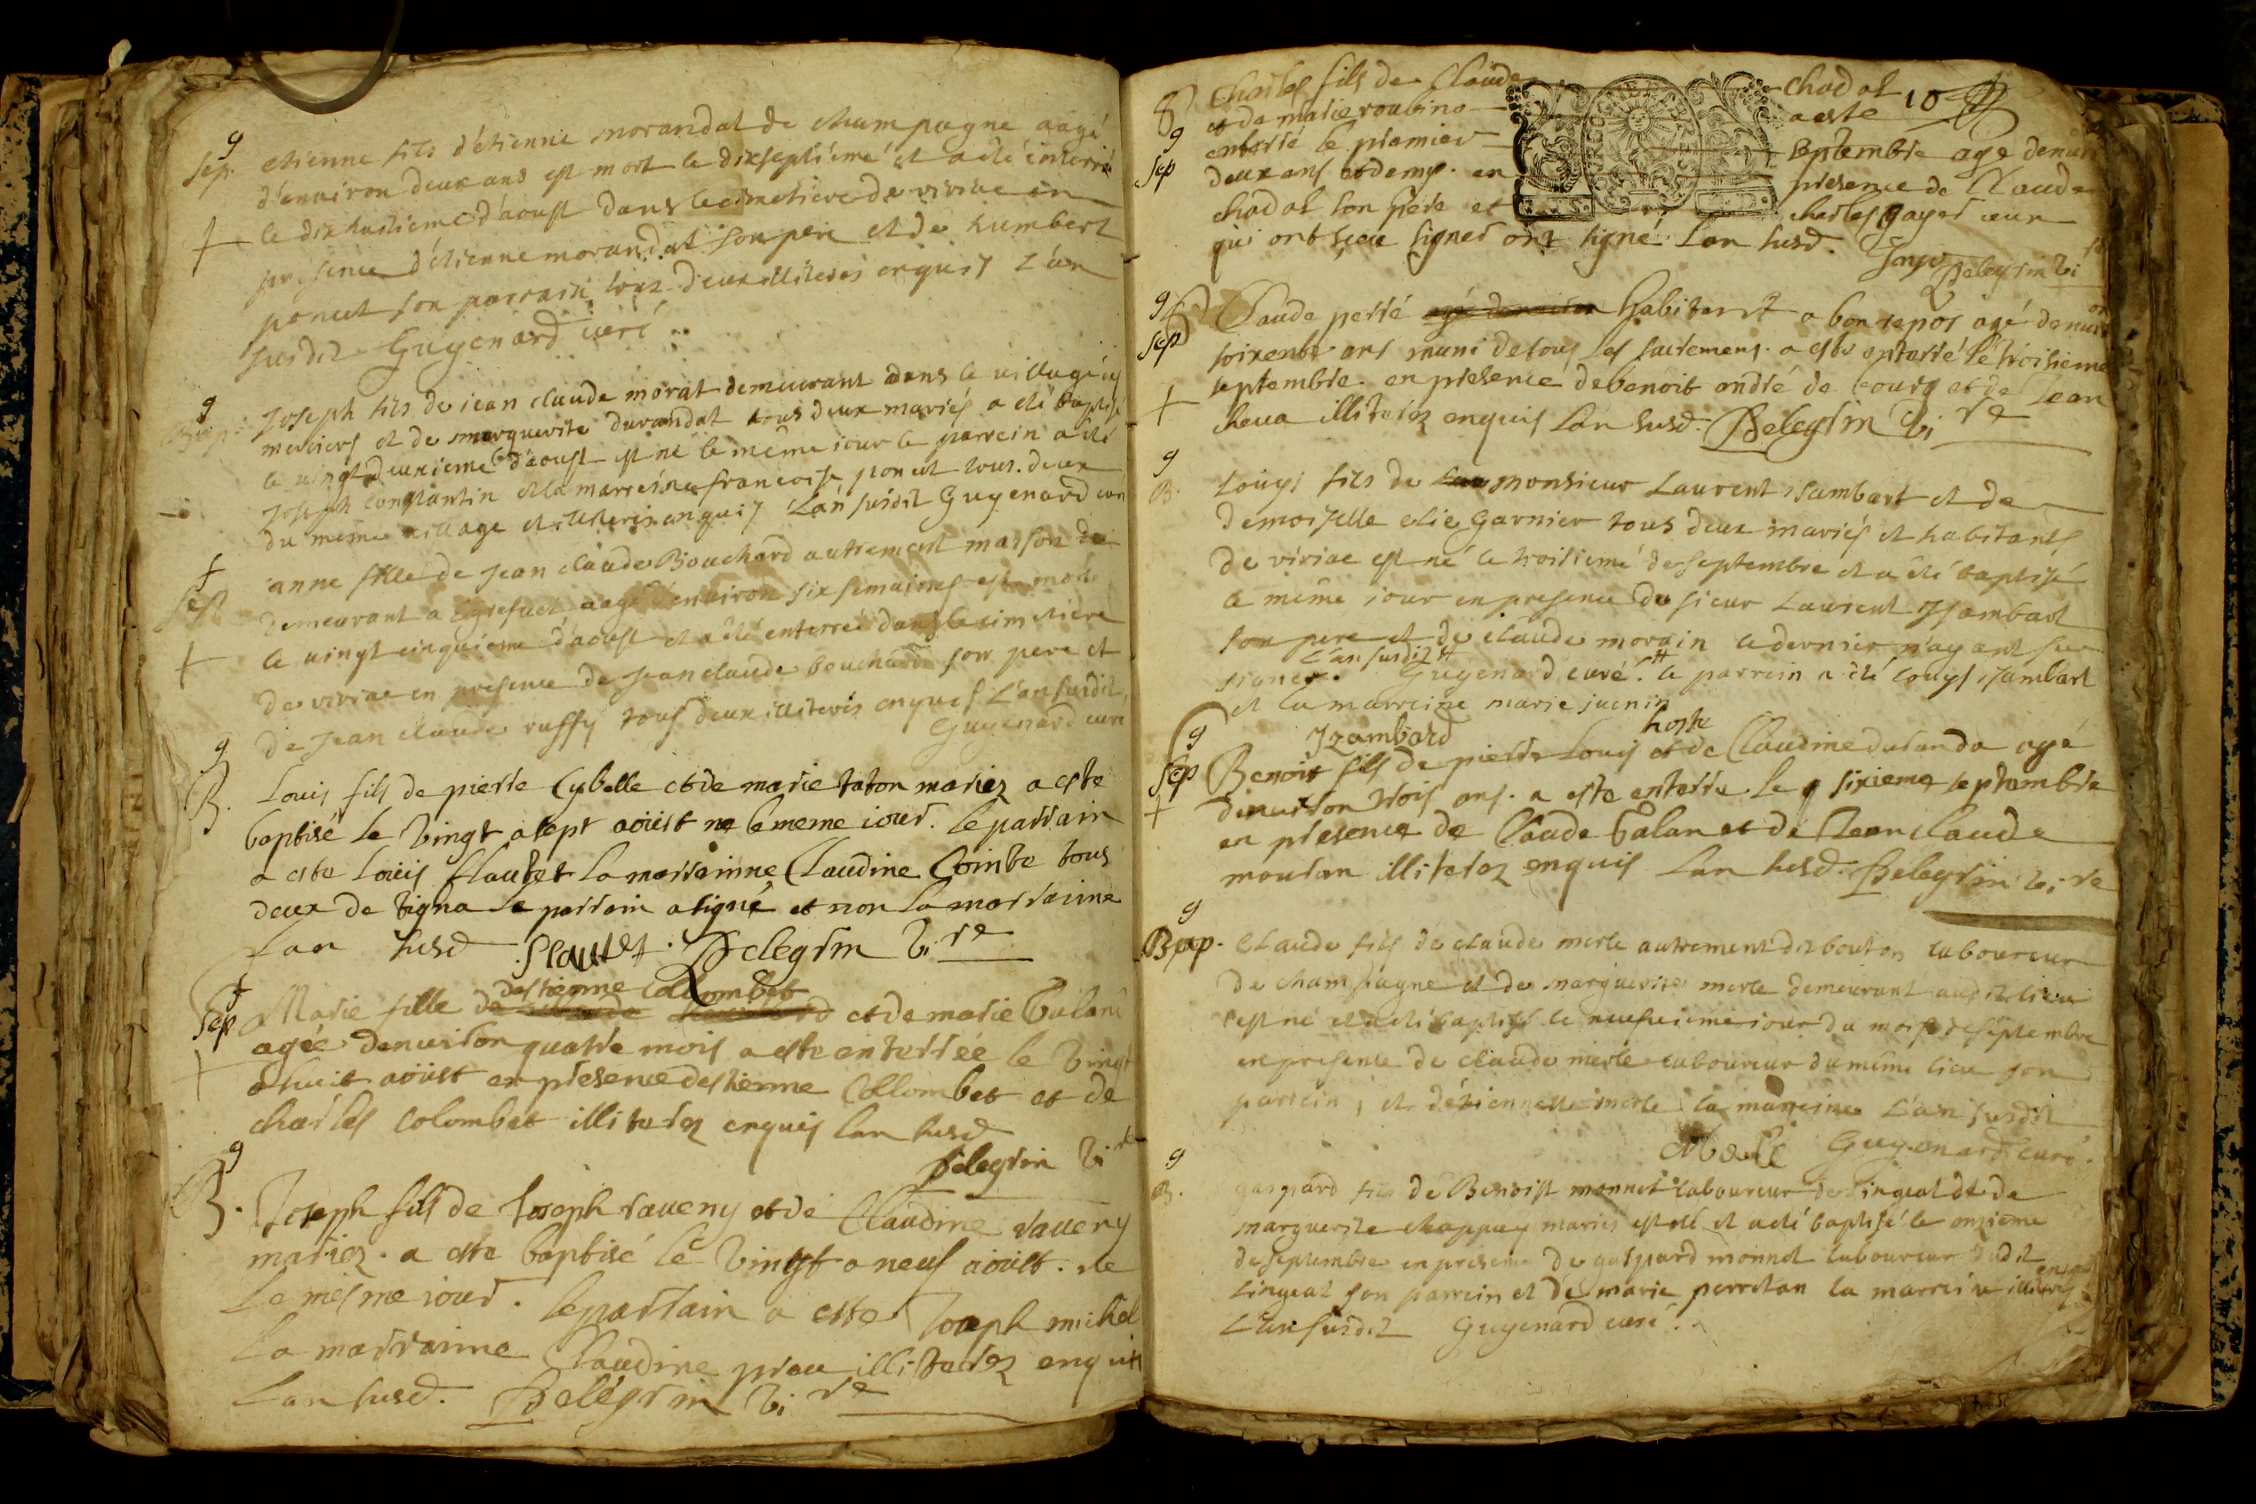 g
Sep. etienne fils d'étienne morandat de champagne aagé
d'environ deux ans est mort le dixseptiéme et a eté enterré
le dix huitieme d'aoust dans le cimetiere de viriac en
presence d'étienne morandat son pere et de humbert
poncet son parrain tous deux illiteres enquis L'an
susdit Guyenard curé
g
Bap. Joseph fils de jean claude morat demeurant dans le village des
merciers et de marguerite durandat tous deux mariés a eté baptisé
le vingt deuxieme d'aoust est né le même jour le parrein a eté
Joseph constantin et la marreine francoise poncet tous deux
du même village et illiteris enquis L'an susdit Guyenard curé
f
Sep anne fille de jean claude Bouchard autrement maison
demeurant a agée d'environ six semaines est morte
le vingt cinquieme d'aoust et a eté enterrée dans le cimetiere
de viriac en presence de jean claude bouchard son pere et
de jean claude ruffy tous deux illiteris enquis L'an susdit
Guyenard curé
g
B. Louis fils de pierre Cybelle et de marie taton mariez a este
baptisé le vingt a sept aoüst ne le meme iour. le parrain
a este Louis flautet la marrainne Claudine Cointe tous
deux de vigna le parrain a signé et non la marrainne
Lan susd. flautet. Pelegrin vi re
f
destienne Colombet
Sep Marie fille de et de marie Galand
agée denuiron quatre mois a este enterrée le vingt
a huit aoüst en presence destienne Collombet et de
charles colombet illiterez enquis lan susd
Pelegrin vi re
g
B. Joseph fils de Joseph raueny et de Claudine raueny
mariez. a este baptisé le vingt a neuf aoüst. ne
le mesme iour. le parrain a este Joseph michel
La marrainne Claudine prau illiterez enquis
Lan susd. Pelegrin vi re
10
g
Sep Charles fils de Claude chadat
et de marie roubino a este
enterré le premier septembre agé denuiron
deux ans et demy. en presence de Claude
chadat son pere et charles gayet
qui ont sceu signer ont signé. Lan susd.
Pelegrin vi
g
Sep Claude perré habitant a bon repos agé denuiron
soixente ans muni de tous les sacremens. a este enterré le troisieme
septembre. en presence de benoit andré de bourg et de Jean
illiterez enquis Lan susd. Pelegrin vi re
g
B. Louys fils de monsieur Laurent isambart et de
demoiselle elie Garnier tous deux mariés et habitants
de viriac est né le troisiemé de septembre et a eté baptisé
le même jour en presence du sieur Laurent Isambart
son pere et de claude morain le dernier n'ayant su
signer. L'an susdit Guyenard curé. le parrein a eté Louys isambart
et la marreine marie juenin
g
Izambard hoste
Sep Benoit fils de pierre Louis et de Claudine duranda agé
denuiron trois ans. a este enterré. le sixieme septembre
en presence de Claude Galan et de Jean claude
moutan illiterez enquis Lan susd. Pelegrin vi re
g
Bap. Claude fils de claude merle autrement dit bouton laboureur
de champagne et de marguerite merle demeurant audit lieu
est né et a eté baptisé le neufvieme jour du mois de septembre
en presence de claude merle laboureur du même lieu son
parrein, et d'étiennette merle la marreine L'an susdit
Merle Guyenard curé.
g
B. gaspard fils de Benoist monnet laboureur de lingeat et de
marguerite chappuy mariés est né et a eté baptisé le onzieme
de septembre en presence de gaspard monnet laboureur dudit
Lingeat son parrein et de marie perretan la marreine illiteris
L'an susdit Guyenard curé.